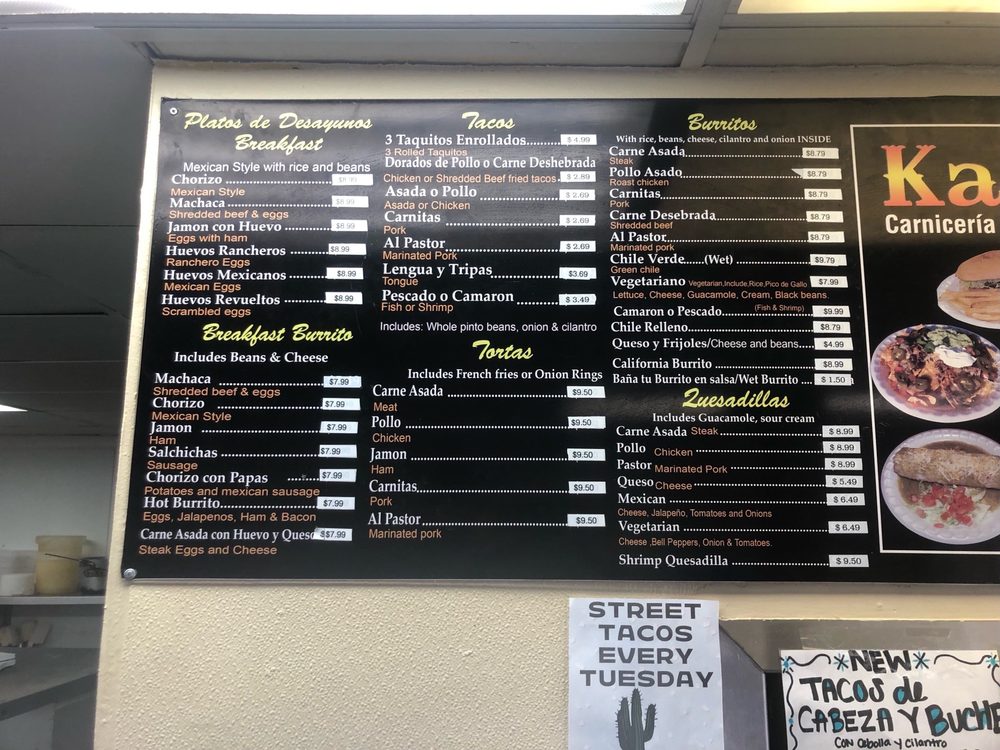 Platos de Desayunos
Breakfast
Mexican Style with rice and beans
Chorizo $8.99
Mexican Style
Machaca $8.99
Shredded beef & eggs
Jamon con Huevo $8.99
Eggs with ham
Huevos Rancheros $8.99
Ranchero Eggs
Huevos Mexicanos $8.99
Mexican Eggs
Huevos Revueltos $8.99
Scrambled eggs
Breakfast Burrito
Includes Beans & Cheese
Machaca $7.99
Shredded beef & eggs
Chorizo $7.99
Mexican Style
Jamon $7.99
Ham
Salchichas $7.99
Sausage
Chorizo con Papas $7.99
Potatoes and mexican sausage
Hot Burrito $7.99
Eggs, Jalapenos, Ham & Bacon
Carne Asada con Huevo y Queso $7.99
Steak Eggs and Cheese
Tacos
3 Taquitos Enrollados $4.99
3 Rolled Taquitos
Dorados de Pollo o Carne Deshebrada
Chicken or Shredded Beef fried tacos $2.89
Asada o Pollo $2.69
Asada or Chicken
Carnitas $2.69
Pork
Al Pastor $2.69
Marinated Pork
Lengua y Tripas $3.69
Tongue
Pescado o Camaron $3.49
Fish or Shrimp
Includes: Whole pinto beans, onion & cilantro
Tortas
Includes French fries or Onion Rings
Carne Asada $9.50
Meat
Pollo $9.50
Chicken
Jamon $9.50
Ham
Carnitas $9.50
Pork
Al Pastor $9.50
Marinated pork
Burritos
With rice, beans, cheese, cilantro and onion INSIDE
Carne Asada $8.79
Steak
Pollo Asado $8.79
Roast chicken
Carnitas $8.79
Pork
Carne Desebrada $8.79
Shredded beef
Al Pastor $8.79
Marinated pork
Chile Verde......(Wet) $9.79
Green chile
Vegetariano Vegetarian,Include,Rice,Pico de Gallo $7.99
Lettuce, Cheese, Guacamole, Cream, Black beans.
Camaron o Pescado (Fish & Shrimp) $9.99
Chile Relleno $8.79
Queso y Frijoles/Cheese and beans $4.99
California Burrito $8.99
Baña tu Burrito en salsa/Wet Burrito $1.50
Quesadillas
Includes Guacamole, sour cream
Carne Asada Steak $8.99
Pollo Chicken $8.99
Pastor Marinated Pork $8.99
Queso Cheese $5.49
Mexican $6.49
Cheese, Jalapeño, Tomatoes and Onions
Vegetarian $6.49
Cheese ,Bell Peppers, Onion & Tomatoes.
Shrimp Quesadilla $9.50
Ka
Carnicería
STREET
TACOS
EVERY
TUESDAY
*NEW*
TACOS de
CABEZA Y BUCHE
CON Cebolla y cilantro